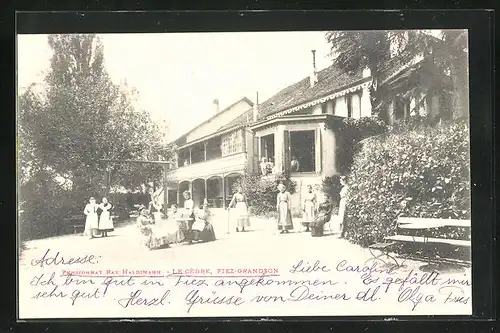 Adresse:
PENSIONNAT RAY-HALDIMANN - LE CÈDRE, FIEZ-GRANDSON
Liebe Caroline
Ich bin gut in Fiez angekommen. Es gefällt mir
sehr gut! Herzl. Grüsse von Deiner dl! Olga